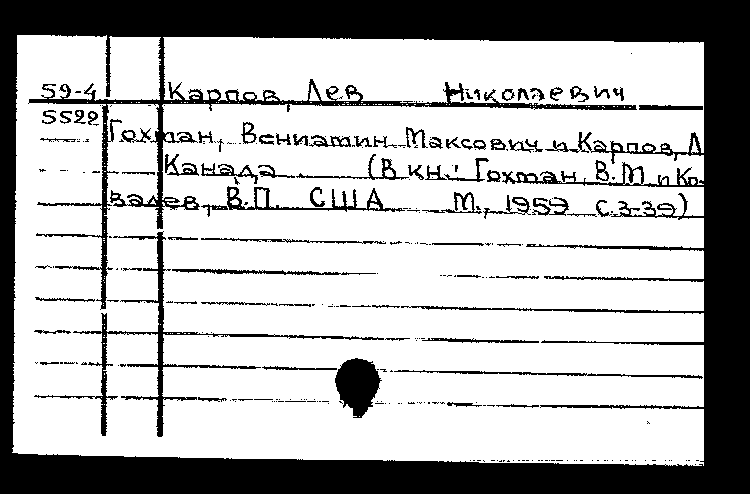 59-4 Карпов, Лев Николаевич
5522
Гохман, Вениамин Максович и Карпов, Л
Канада (В кн.: Гохман, В.М и Ко-
валев, В.П. США М., 1959 с.3-39)